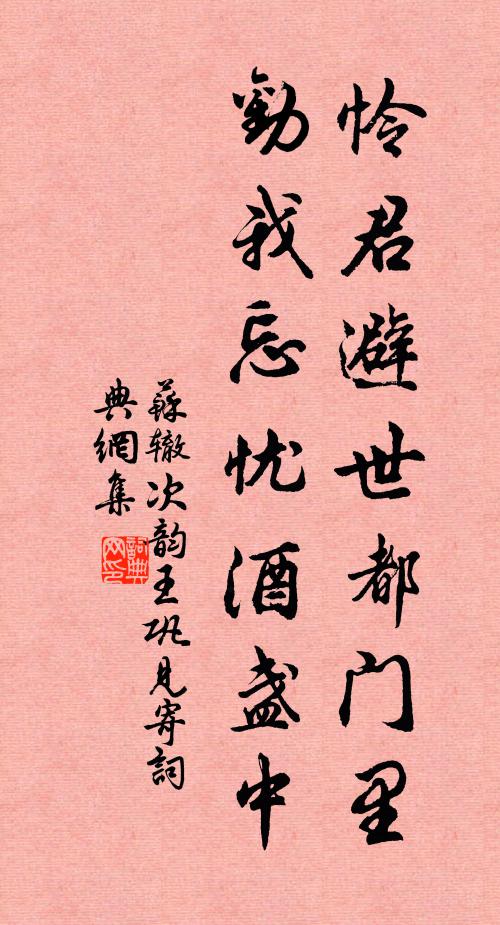 怜君避世都门里
劝我忘忧酒盏中
苏辙次韵王巩见寄詞
典網集
詞典
网印